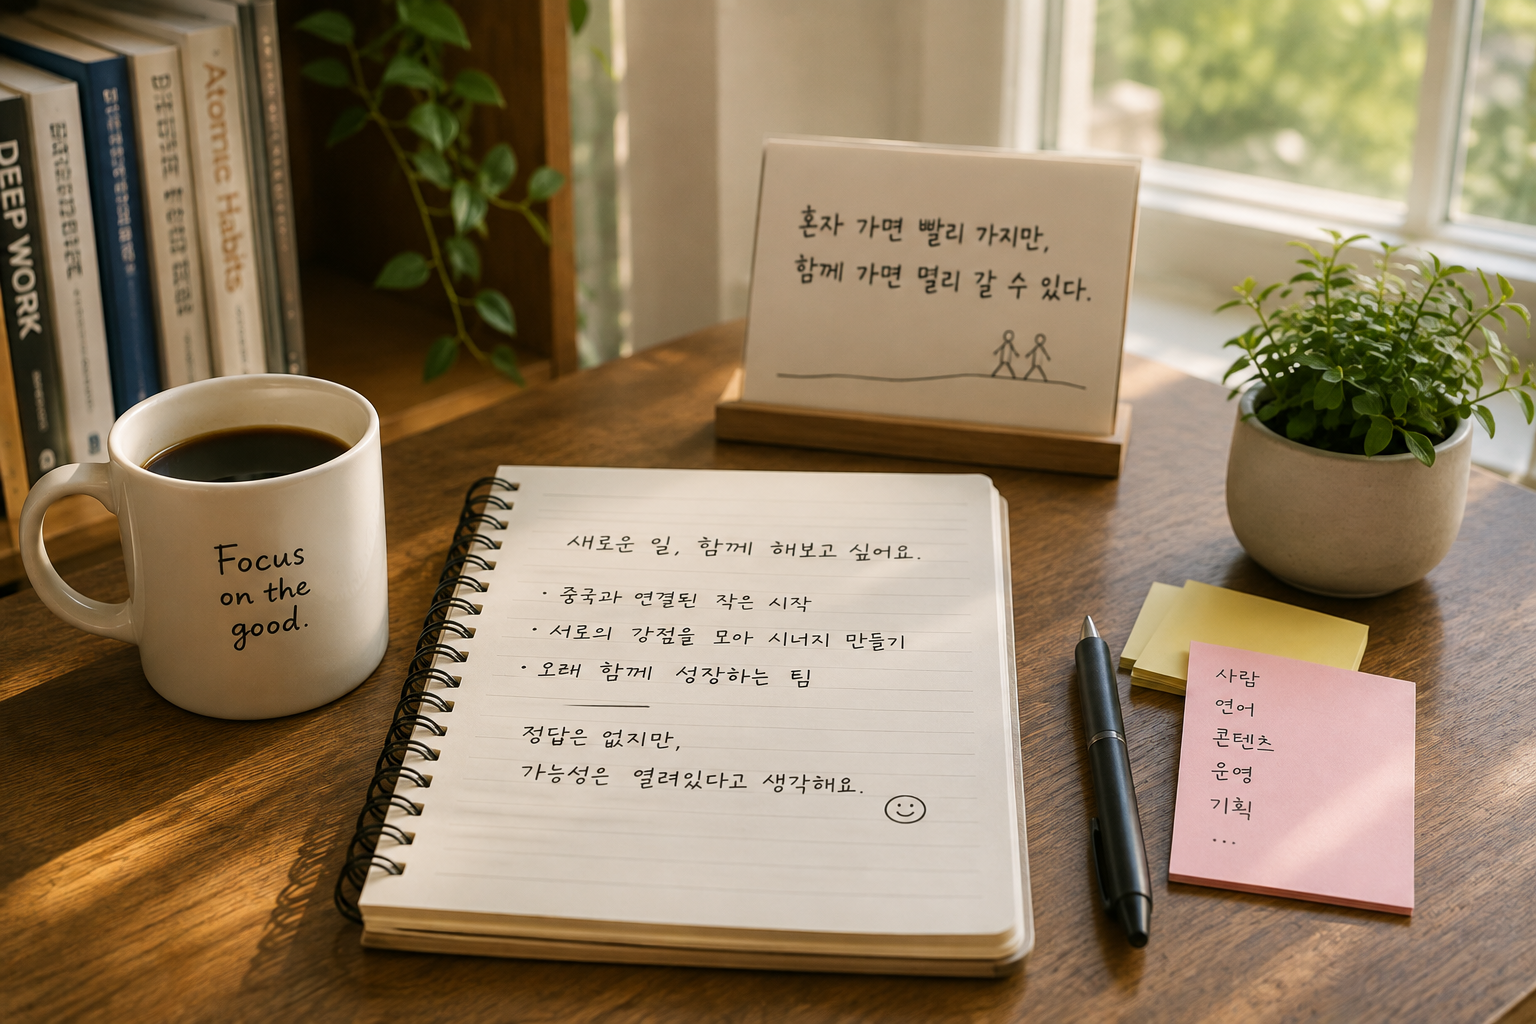 DEEP WORK
Atomic Habits
Focus
on the
good.
혼자 가면 빨리 가지만,
함께 가면 멀리 갈 수 있다.
새로운 일, 함께 해보고 싶어요.
· 중국과 연결된 작은 시작
· 서로의 강점을 모아 시너지 만들기
· 오래 함께 성장하는 팀
정답은 없지만,
가능성은 열려있다고 생각해요.
사람
연어
콘텐츠
운영
기획
...